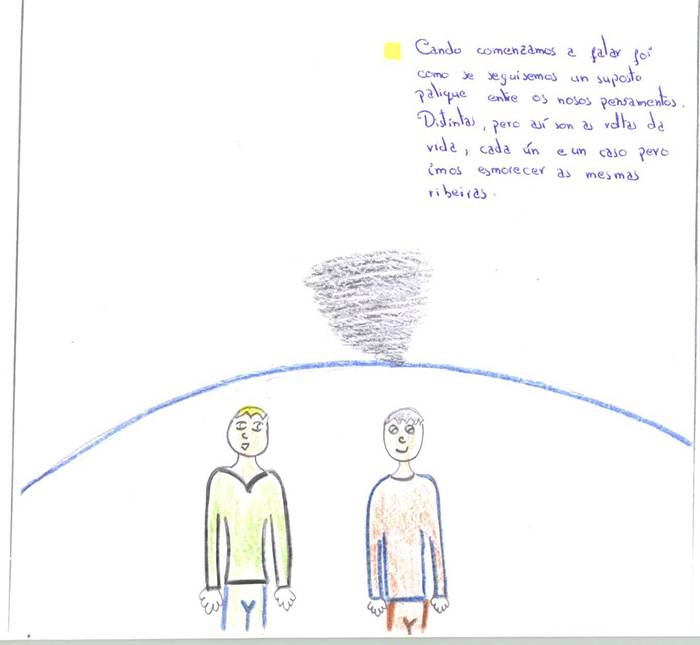 Cando comenzamos a falar foi
como se seguisemos un suposto
palique entre os nosos pensamentos.
Distintas, pero así son as voltas da
vida, cada ún e un caso pero
imos esmorecer as mesmas
ribeiras.